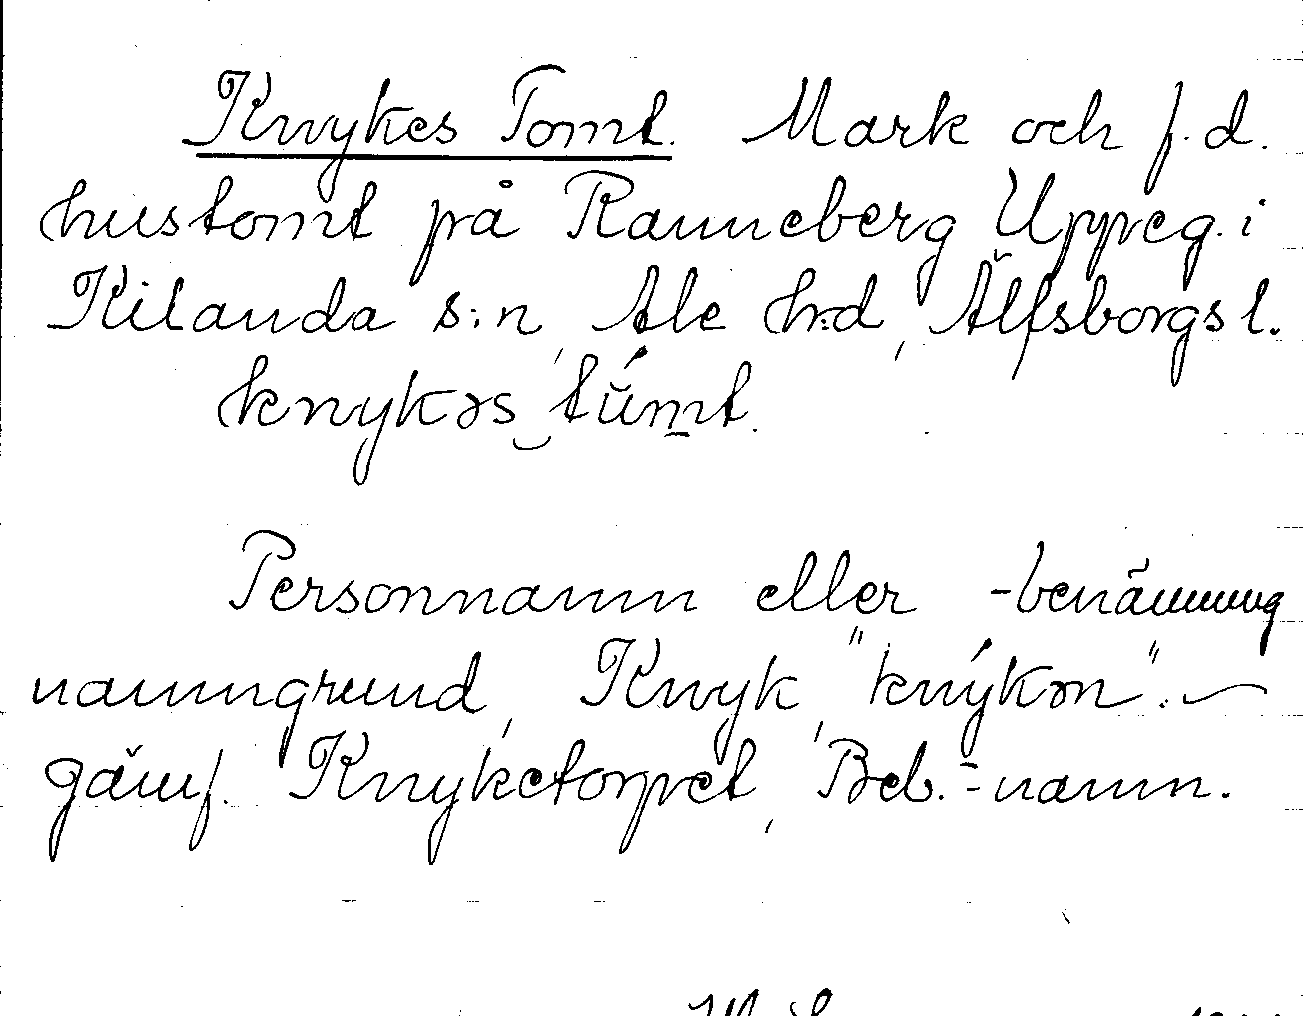 Knykes Tomt. Mark och f.d.
hustomt på Ranneberg Uppeg. i
Kilanda s:n, Ale h:d, Älfsborgs l.
knykəs tu̇mt.
Personnamn eller -benämning
namngrund, Knyk, "knýkən". —
jämf. Knyketorpet, Beb.-namn.